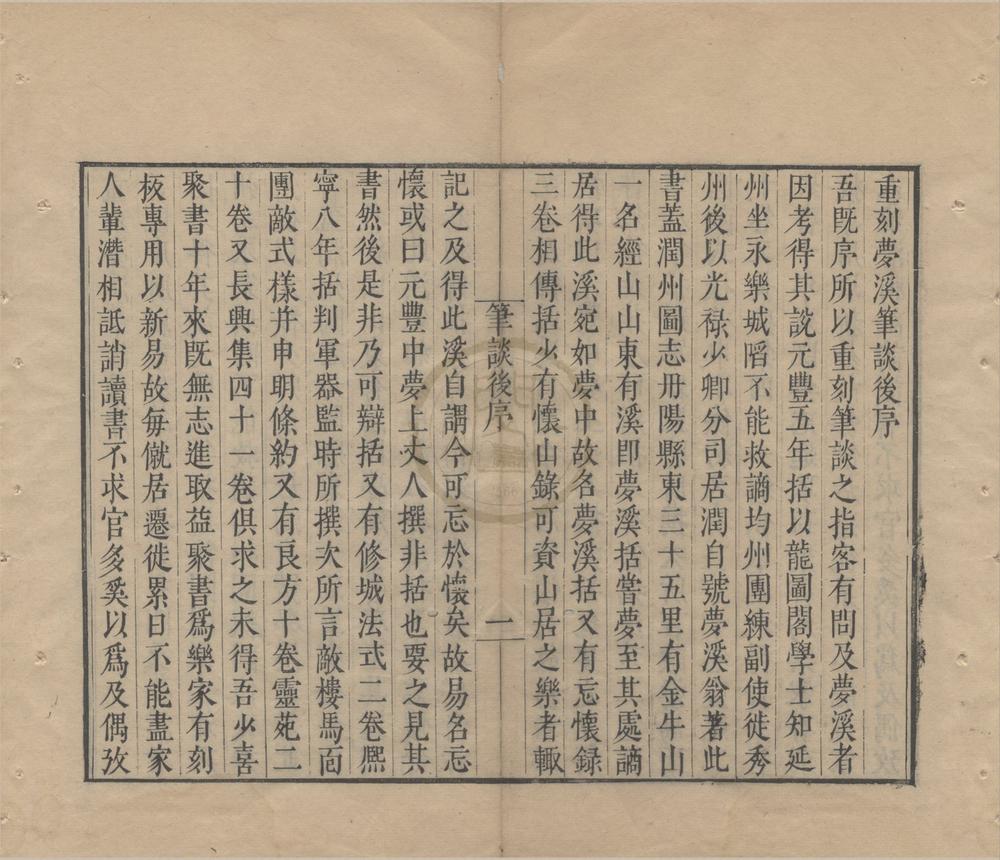 重刻夢溪筆談後序
吾旣序所以重刻筆談之指客有問及夢溪者
因考得其說元豐五年括以龍圖閣學士知延
州坐永樂城䧟不能救謫均州團練副使徙秀
州後以光祿少卿分司居潤自號夢溪翁著此
書蓋潤州圖志丹陽縣東三十五里有金牛山
一名經山山東有溪卽夢溪括嘗夢至其處謫
居得此溪宛如夢中故名夢溪括又有忘懷錄
三卷相傳括少有懷山錄可資山居之樂者輙
筆談後序
一
記之及得此溪自謂今可忘於懷矣故易名忘
懷或曰元豐中夢上丈人撰非括也要之見其
書然後是非乃可辯括又有修城法式二卷熈
寧八年括判軍器監時所撰次所言敵樓馬面
團敵式樣并申明條約又有良方十卷靈苑二
十卷又長興集四十一卷俱求之未得吾少喜
聚書十年來旣無志進取益聚書爲樂家有刻
板專用以新易故每僦居遷徙累日不能盡家
人輩潛相詆誚讀書不求官多奚以爲及偶攷